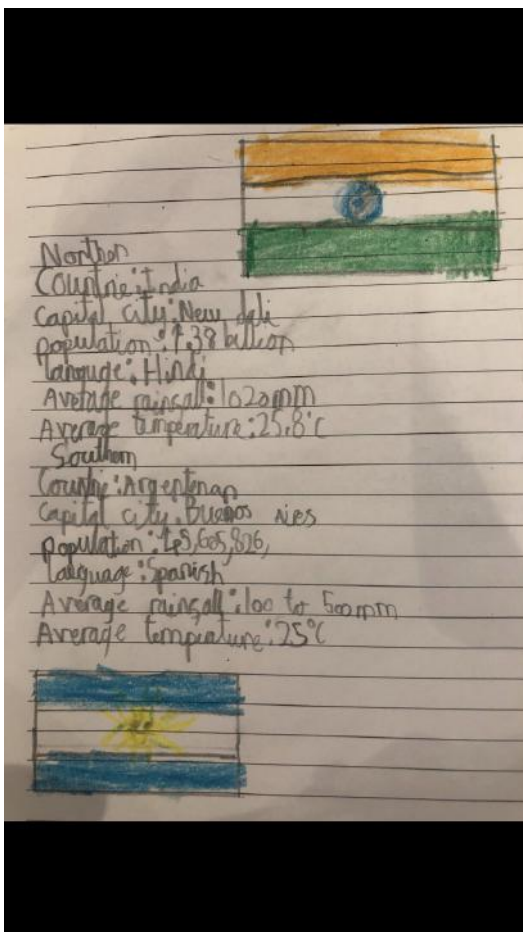 Northen
Countrie: India
Capital city: New deli
population: 1.38 billion
languge: Hindi
Average rainfall: 1020mm
Average temperature: 25.8°C
Southern
Countrie: Argentinan
Capital city: Buenos Aires
population: 45,605,826,
language: Spanish
Average rainfall: 100 to 500mm
Average temperature: 25°C